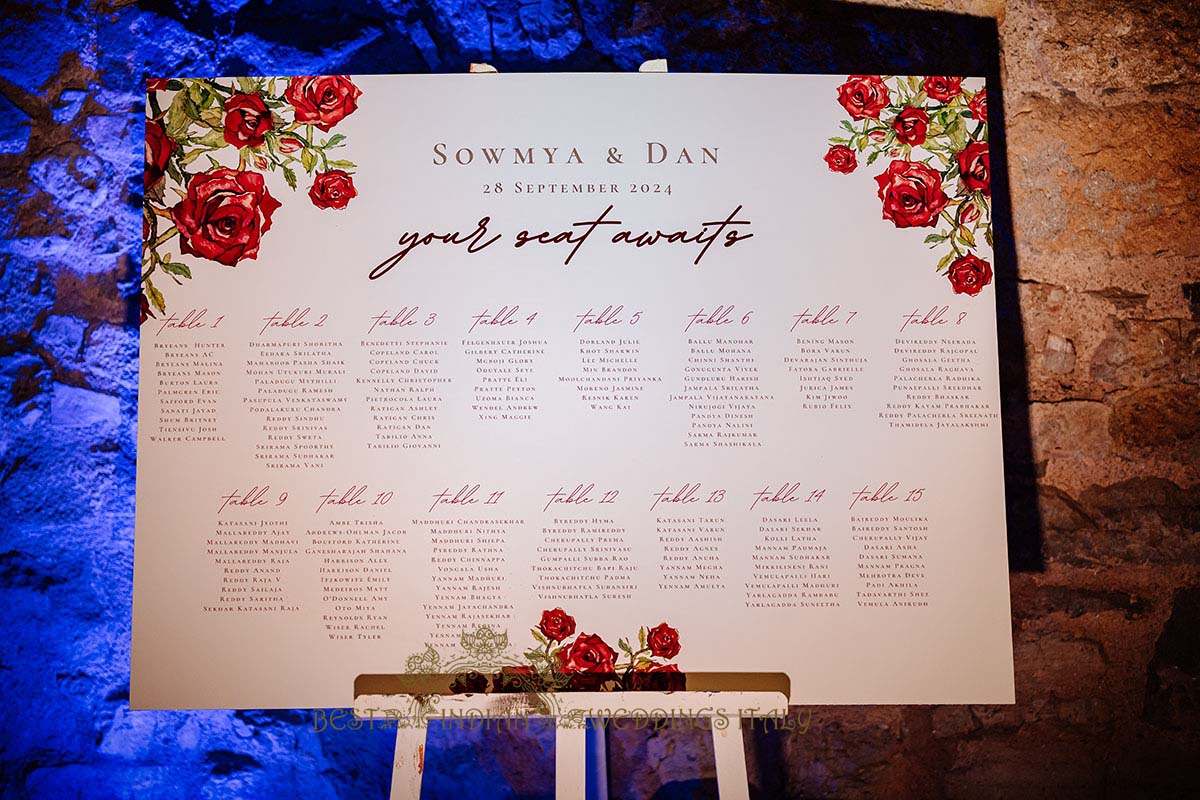 SOWMYA & DAN
28 SEPTEMBER 2024
your seat awaits
table 1
BRYEANS HUNTER
BRYEANS AC
BRYEANS MALINA
BRYEANS MASON
BURTON LAURA
PALMGREN ERIC
SAFFORD EVAN
SANATI JAVAD
SHUM BRITNEY
TIENSIVU JOSH
WALKER CAMPBELL
table 2
DHARMAPURI SHOBITHA
EEDARA SRILATHA
MAHABOOB PASHA SHAIK
MOHAN UTUKURI MURALI
PALADUGU MYTHILLI
PALADUGU RAMESH
PASUPULA VENKATASWAMY
PODALAKURU CHANDRA
REDDY SINDHU
REDDY SRINIVAS
REDDY SWETA
SRIRAMA SPOORTHY
SRIRAMA SUDHAKAR
SRIRAMA VANI
table 3
BENEDETTI STEPHANIE
COPELAND CAROL
COPELAND CHUCK
COPELAND DAVID
KENNELLY CHRISTOPHER
NATHAN RALPH
PIETROCOLA LAURA
RATIGAN ASHLEY
RATIGAN CHRIS
RATIGAN DAN
TABILIO ANNA
TABILIO GIOVANNI
table 4
FELGENHAUER JOSHUA
GILBERT CATHERINE
MCHOII GLORY
ODUYALE SEYE
PRATTE ELI
PRATTE PEYTON
UZOMA BIANCA
WENDEL ANDREW
XING MAGGIE
table 5
DORLAND JULIE
KHOT SHARWIN
LEE MICHELLE
MIN BRANDON
MOOLCHANDANI PRIYANKA
MORENO JASMINE
RESNIK KAREN
WANG KAI
table 6
BALLU MANOHAR
BALLU MOHANA
CHINNI SHANTHI
GONUGUNTA VIVEK
GUNDLURU HARISH
JAMPALA SRILATHA
JAMPALA VIJAYANARAYANA
NIRUJOGI VIJAYA
PANDYA DINESH
PANDYA NALINI
SARMA RAJKUMAR
SARMA SHASHIKALA
table 7
BENING MASON
BORA VARUN
DEVARAJAN SINDHUJA
FATORA GABRIELLE
ISHTIAQ SYED
JURICA JAMES
KIM JIWOO
RUBIO FELIX
table 8
DEVIREDDY NEERADA
DEVIREDDY RAJGOPAL
GHOSALA GEETHA
GHOSALA RAVI
PALACHERLA RADHIKA
PUNATPALLI SREEDHAR
REDDY BHASKAR
REDDY KAYAM PRABHAKAR
REDDY PALACHERLA SREENATH
THAMIDELA JAYALAKSHMI
table 9
KATASANI JYOTHI
MALLAREDDY AJAY
MALLAREDDY MADHAVI
MALLAREDDY MANJULA
MALLAREDDY RAJA
REDDY ANAND
REDDY RAJA V
REDDY SAILAJA
REDDY SARITHA
SEKHAR KATASANI RAJA
table 10
AMBE TRISHA
ANDREWS-OHLMAN JACOB
BOUFFORD KATHERINE
GANESHARAJAH SHAHANA
HARBISON ALEX
HARBISON DANIEL
ITZKOWITZ EMILY
MEDEIROS MATT
O'DONNELL AMY
OTO MIYA
REYNOLDS RYAN
WISER RACHEL
WISER TYLER
table 11
MADDHURI CHANDRASEKHAR
MADDHURI NITHYA
MADDHURI SHILPA
PYREDDY RATHNA
REDDY CHINNAPPA
VONGALA USHA
YANNAM MADHURI
YANNAM RAJESH
YANNAM BHAGYA
YENNAM JAYACHANDRA
YENNAM RAJASEKHAR
YENNAM REGINA
YENNAM
table 12
BYREDDY HYMA
BYREDDY RAMIREDDY
CHERUPALLY PREMA
CHERUPALLY SRINIVASU
GUMPALLI SUBBA RAO
THOKACHITCHU BAPI RAJU
THOKACHITCHU PADMA
VISHNUBHATLA SUHASINI
VISHNUBHATLA SURESH
table 13
KATASANI TARUN
KATASANI VARUN
REDDY AASHISH
REDDY AGNES
REDDY ANUHA
YANNAM MEGHA
YANNAM NEHA
YENNAM AMULYA
table 14
DASARI LEELA
DASARI SEKHAR
KOLLI LATHA
MANNAM PADMAJA
MANNAM SUDHAKAR
MIKKILINENI RANI
VEMULAPALLI HARI
VEMULAPALLI MADHURI
YARLAGADDA RAMBABU
YARLAGADDA SUNEETHA
table 15
BAIREDDY MOULIKA
BAIREDDY SANTOSH
CHERUPALLY VIJAY
DASARI ASHA
DASARI SUMANA
MANNAM PRAGNA
MEHROTRA DEVX
PADI AKHILA
TADAVARTHI SHEZ
VEMULA ANIRUDH
BEST INDIAN WEDDINGS ITALY